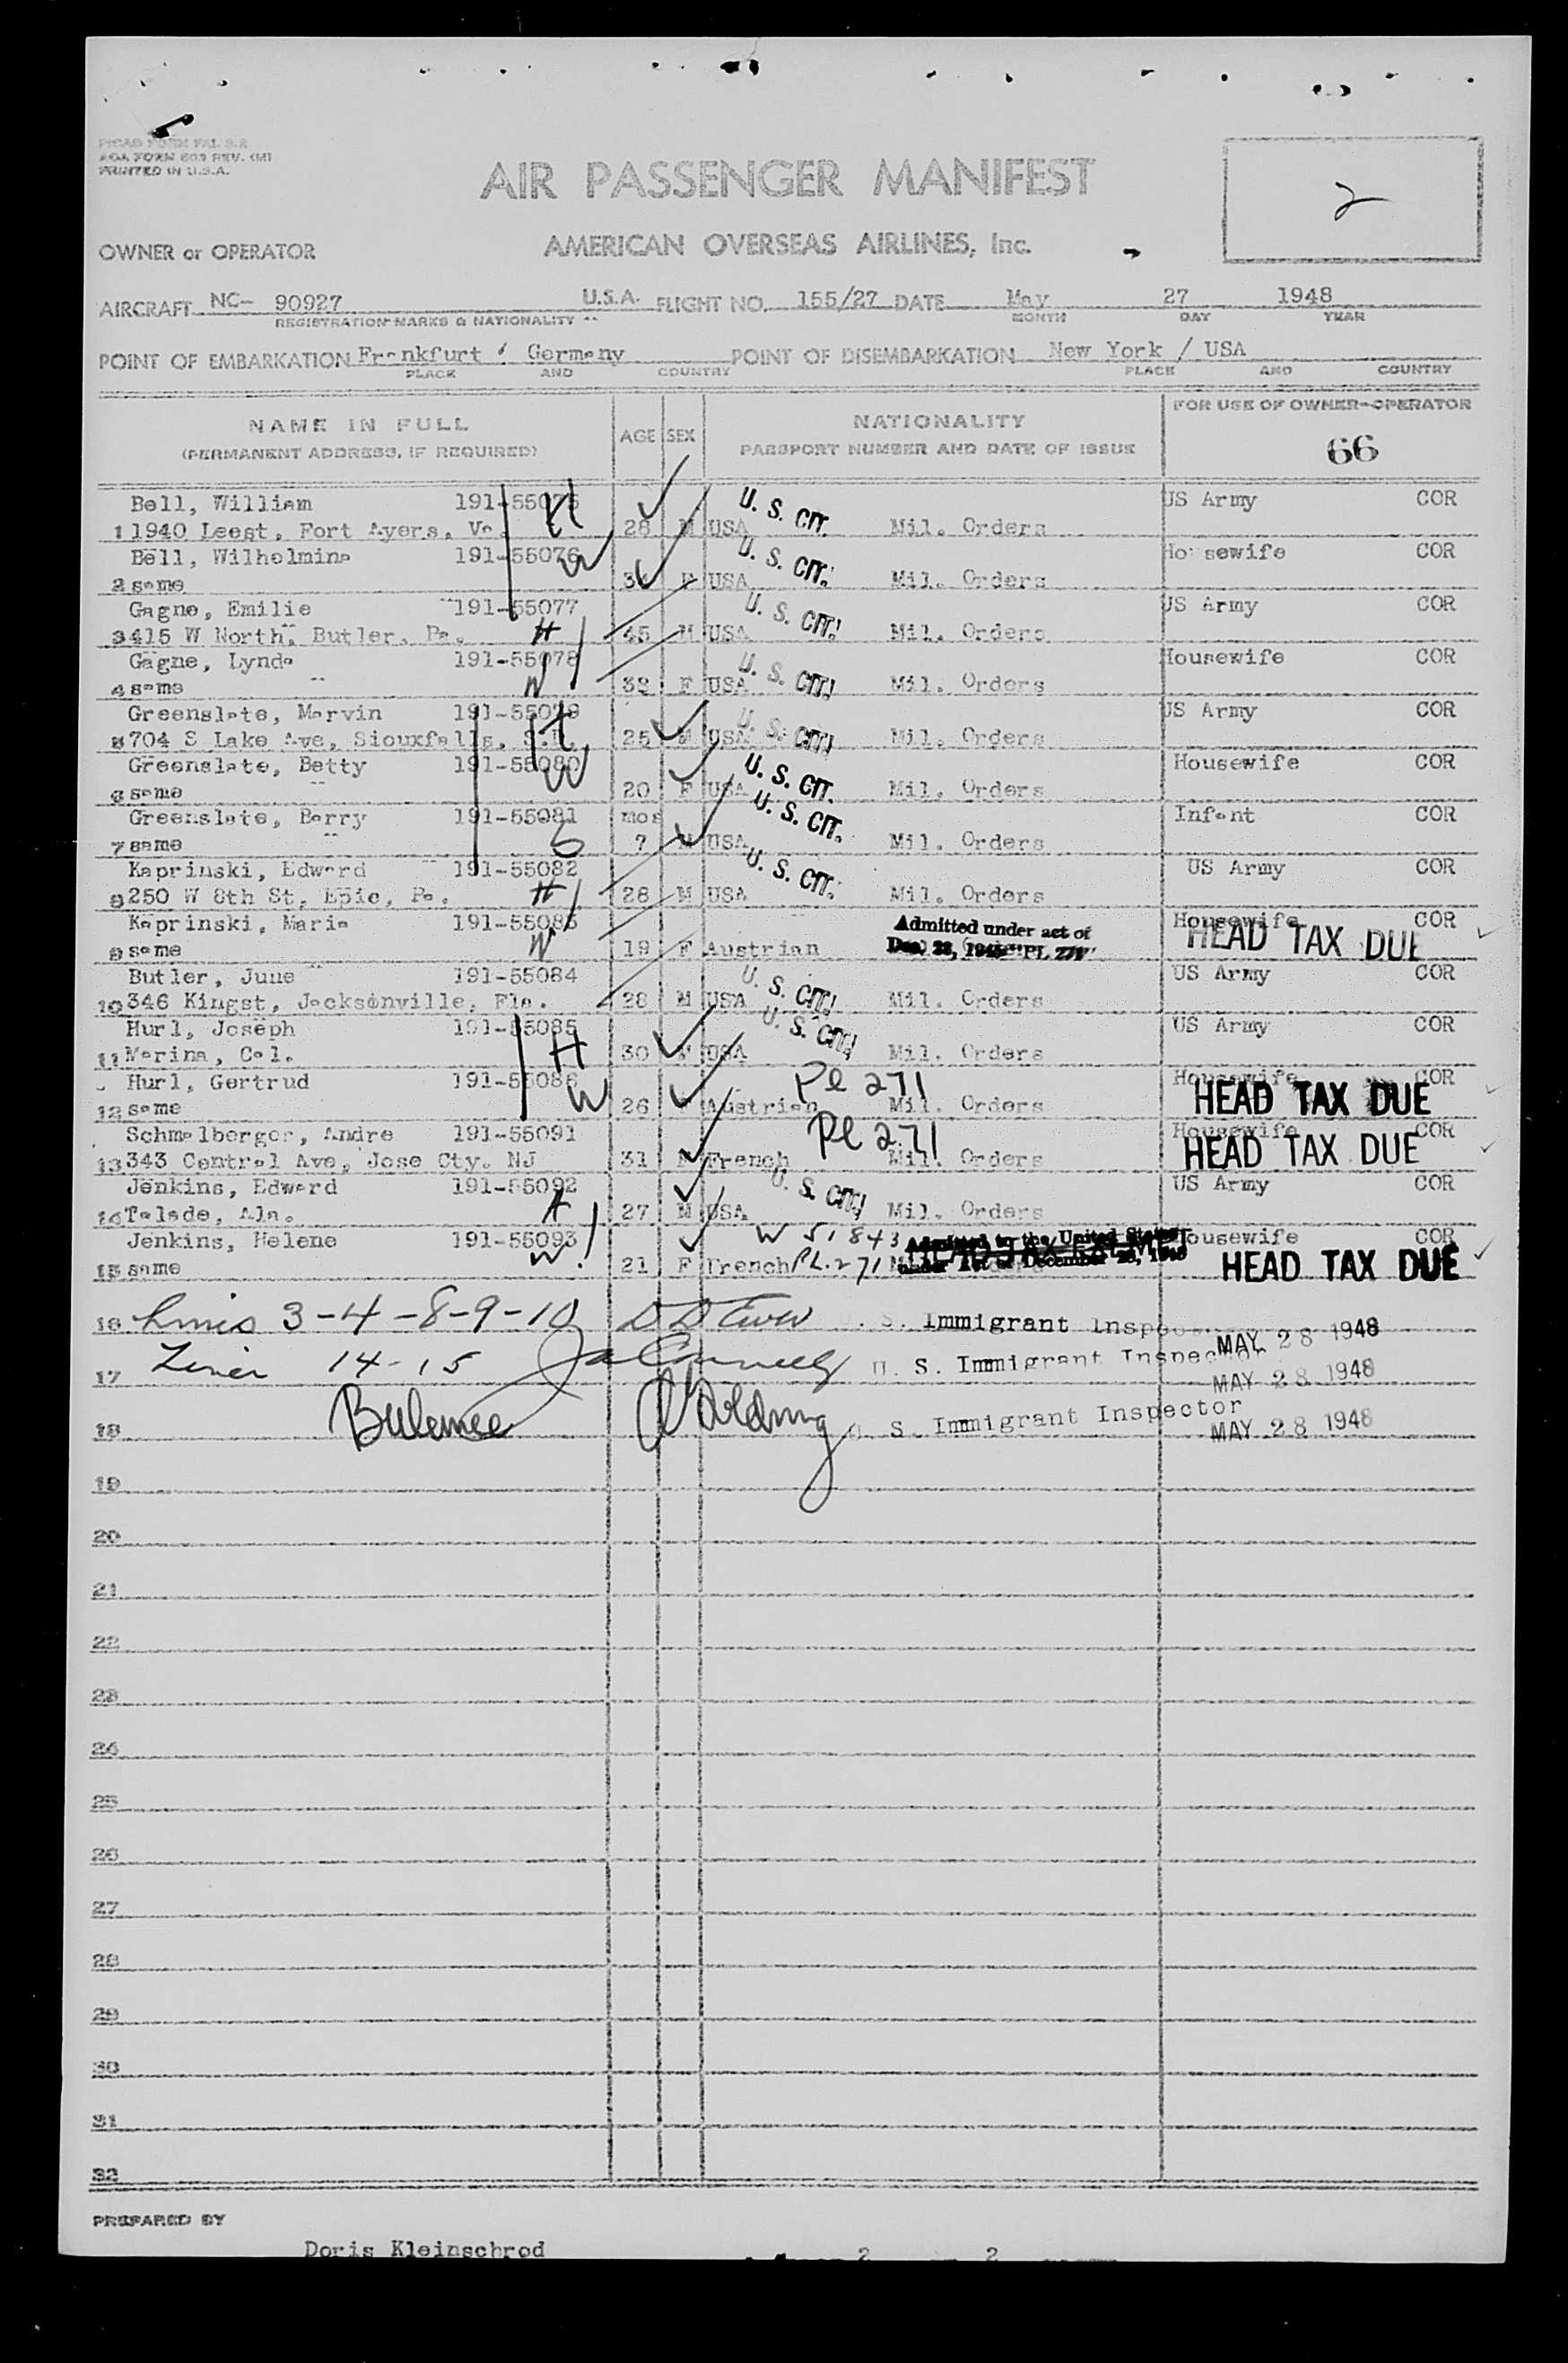 PICAO FORM FAL 3.2
AOA FORM 803 REV. (M)
PRINTED IN U.S.A.
AIR PASSENGER MANIFEST
2
OWNER or OPERATOR AMERICAN OVERSEAS AIRLINES, Inc.
AIRCRAFT NC- 90927 U.S.A. FLIGHT NO. 155/27 DATE May 27 1948
REGISTRATION MARKS & NATIONALITY MONTH DAY YEAR
POINT OF EMBARKATION Frankfurt / Germany POINT OF DISEMBARKATION New York / USA
PLACE AND COUNTRY PLACE AND COUNTRY
NAME IN FULL AGE SEX NATIONALITY FOR USE OF OWNER-OPERATOR
(PERMANENT ADDRESS, IF REQUIRED) PASSPORT NUMBER AND DATE OF ISSUE 66
Bell, William 191-55075 H U. S. CIT. US Army COR
1 1940 Leest, Fort Ayers, Va. 28 M USA Mil. Orders
Bell, Wilhelmina 191-55076 W U. S. CIT. Housewife COR
2 same F USA Mil. Orders
Gagne, Emilie 191-55077 U. S. CIT. US Army COR
3 415 W North, Butler, Pa. H 45 M USA Mil. Orders
Gagne, Lynda 191-55078 U. S. CIT. Housewife COR
4 same W 38 F USA Mil. Orders
Greenslate, Marvin 191-55079 H U. S. CIT. US Army COR
5 704 S Lake Ave, Siouxfalls, S.D. 25 M USA Mil. Orders
Greenslate, Betty 191-55080 W U. S. CIT. Housewife COR
6 same 20 F USA Mil. Orders
Greenslate, Barry 191-55081 mos U. S. CIT. Infant COR
7 same 7 M USA Mil. Orders
Kaprinski, Edward 191-55082 U. S. CIT. US Army COR
8 250 W 8th St, Epic, Pa. H 28 M USA Mil. Orders
Kaprinski, Maria 191-55083 Admitted under act of Housewife COR
9 same W 19 F Austrian Dec. 28, 1945 PL 271 HEAD TAX DUE
Butler, June 191-55084 U. S. CIT. US Army COR
10 346 Kingst, Jacksonville, Fla. 28 M USA Mil. Orders
Hurl, Joseph 191-55085 U. S. CIT. US Army COR
11 Marina, Cal. H 30 USA Mil. Orders
Hurl, Gertrud 191-55086 W PL 271 Housewife COR
12 same 26 Austrian Mil. Orders HEAD TAX DUE
Schmalberger, Andre 191-55091 PL 271 Housewife COR
13 343 Central Ave, Jose Cty. NJ 31 French Mil. Orders HEAD TAX DUE
Jenkins, Edward 191-55092 U. S. CIT. US Army COR
14 Talade, Ala. H 27 M USA Mil. Orders
Jenkins, Helene 191-55093 W 51843 Admitted to the United States Housewife COR
15 same W 21 F French PL. 271 under Act of December 28, 1945 HEAD TAX DUE
16 3-4-8-9-10 U. S. Immigrant Inspector MAY 28 1948
17 14-15 U. S. Immigrant Inspector MAY 28 1948
18 U. S. Immigrant Inspector MAY 28 1948
19
20
21
22
23
24
25
26
27
28
29
30
31
32
PREPARED BY
Doris Kleinschrod 2 2